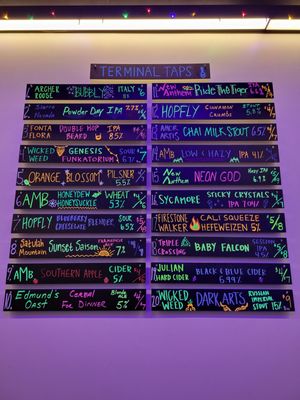 TERMINAL TAPS
1 ARCHER ROOSE BUBBLY ITALY
2 Sierra Nevada Powder Day IPA 7.2%
3 FONTA FLORA DOUBLE HOP BEARD IPA 8.5%
4 WICKED WEED GENESIS FUNKATORIUM SOUR
5 ORANGE BLOSSOM PILSNER 5.5%
6 AMB HONEYDEW HONEYSUCKLE WHEAT 5.3%
7 HOPFLY BLUEBERRY CHEESECAKE BLENDER SOUR
8 Satulah Mountain Sunset Saison
9 AMB SOUTHERN APPLE CIDER 5%
10 Edmund's Oast Cereal For Dinner Blonde Ale 5%
11 New Anthem Ride The Tiger IPA
12 HOPFLY CINNAMON CRUMBS STOUT
CHAI MILK STOUT 6.5%
14 AMB LOW & HAZY IPA 4%
15 New Northern NEON GOD Hazy IPA
16 SYCAMORE STICKY CRYSTALS IPA 7.0%
17 FIRESTONE WALKER CALI SQUEEZE HEFEWEIZEN 5%
18 TRIPLE CROSSING BABY FALCON SESSION IPA
19 JULIAN HARD CIDER BLACK & BLUE CIDER 6.99%
20 WICKED WEED DARK ARTS RUSSIAN IMPERIAL STOUT 15%